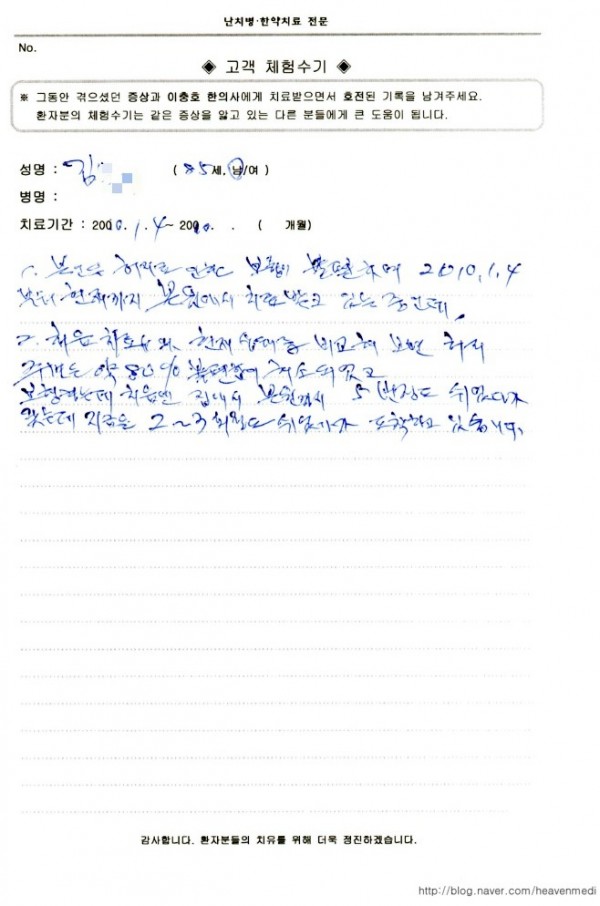 난치병·한약치료 전문
No.
◈ 고객 체험수기 ◈
※ 그동안 겪으셨던 증상과 이충호 한의사에게 치료받으면서 호전된 기록을 남겨주세요.
환자분의 체험수기는 같은 증상을 앓고 있는 다른 분들에게 큰 도움이 됩니다.
성명 : 김 ( 85세. 남/여 )
병명 :
치료기간 : 2010. 1. 4 ~ 2010. . ( 개월)
1. 본인은 허리로 인한 보행이 불편하여 2010, 1, 4
부터 현재까지 본원에서 치료받고 있는 중인데,
2. 처음 치료 현재 상태를 비교하여 보면 허리
약 80% 불편함이 해소되었고
보행하는데 처음엔 집에서 본원까지 5번정도 쉬었다가
왔는데 지금은 2~3회정도 쉬었다가 도착하고 있습니다.
감사합니다. 환자분들의 치유를 위해 더욱 정진하겠습니다.
http://blog.naver.com/heavenmedi